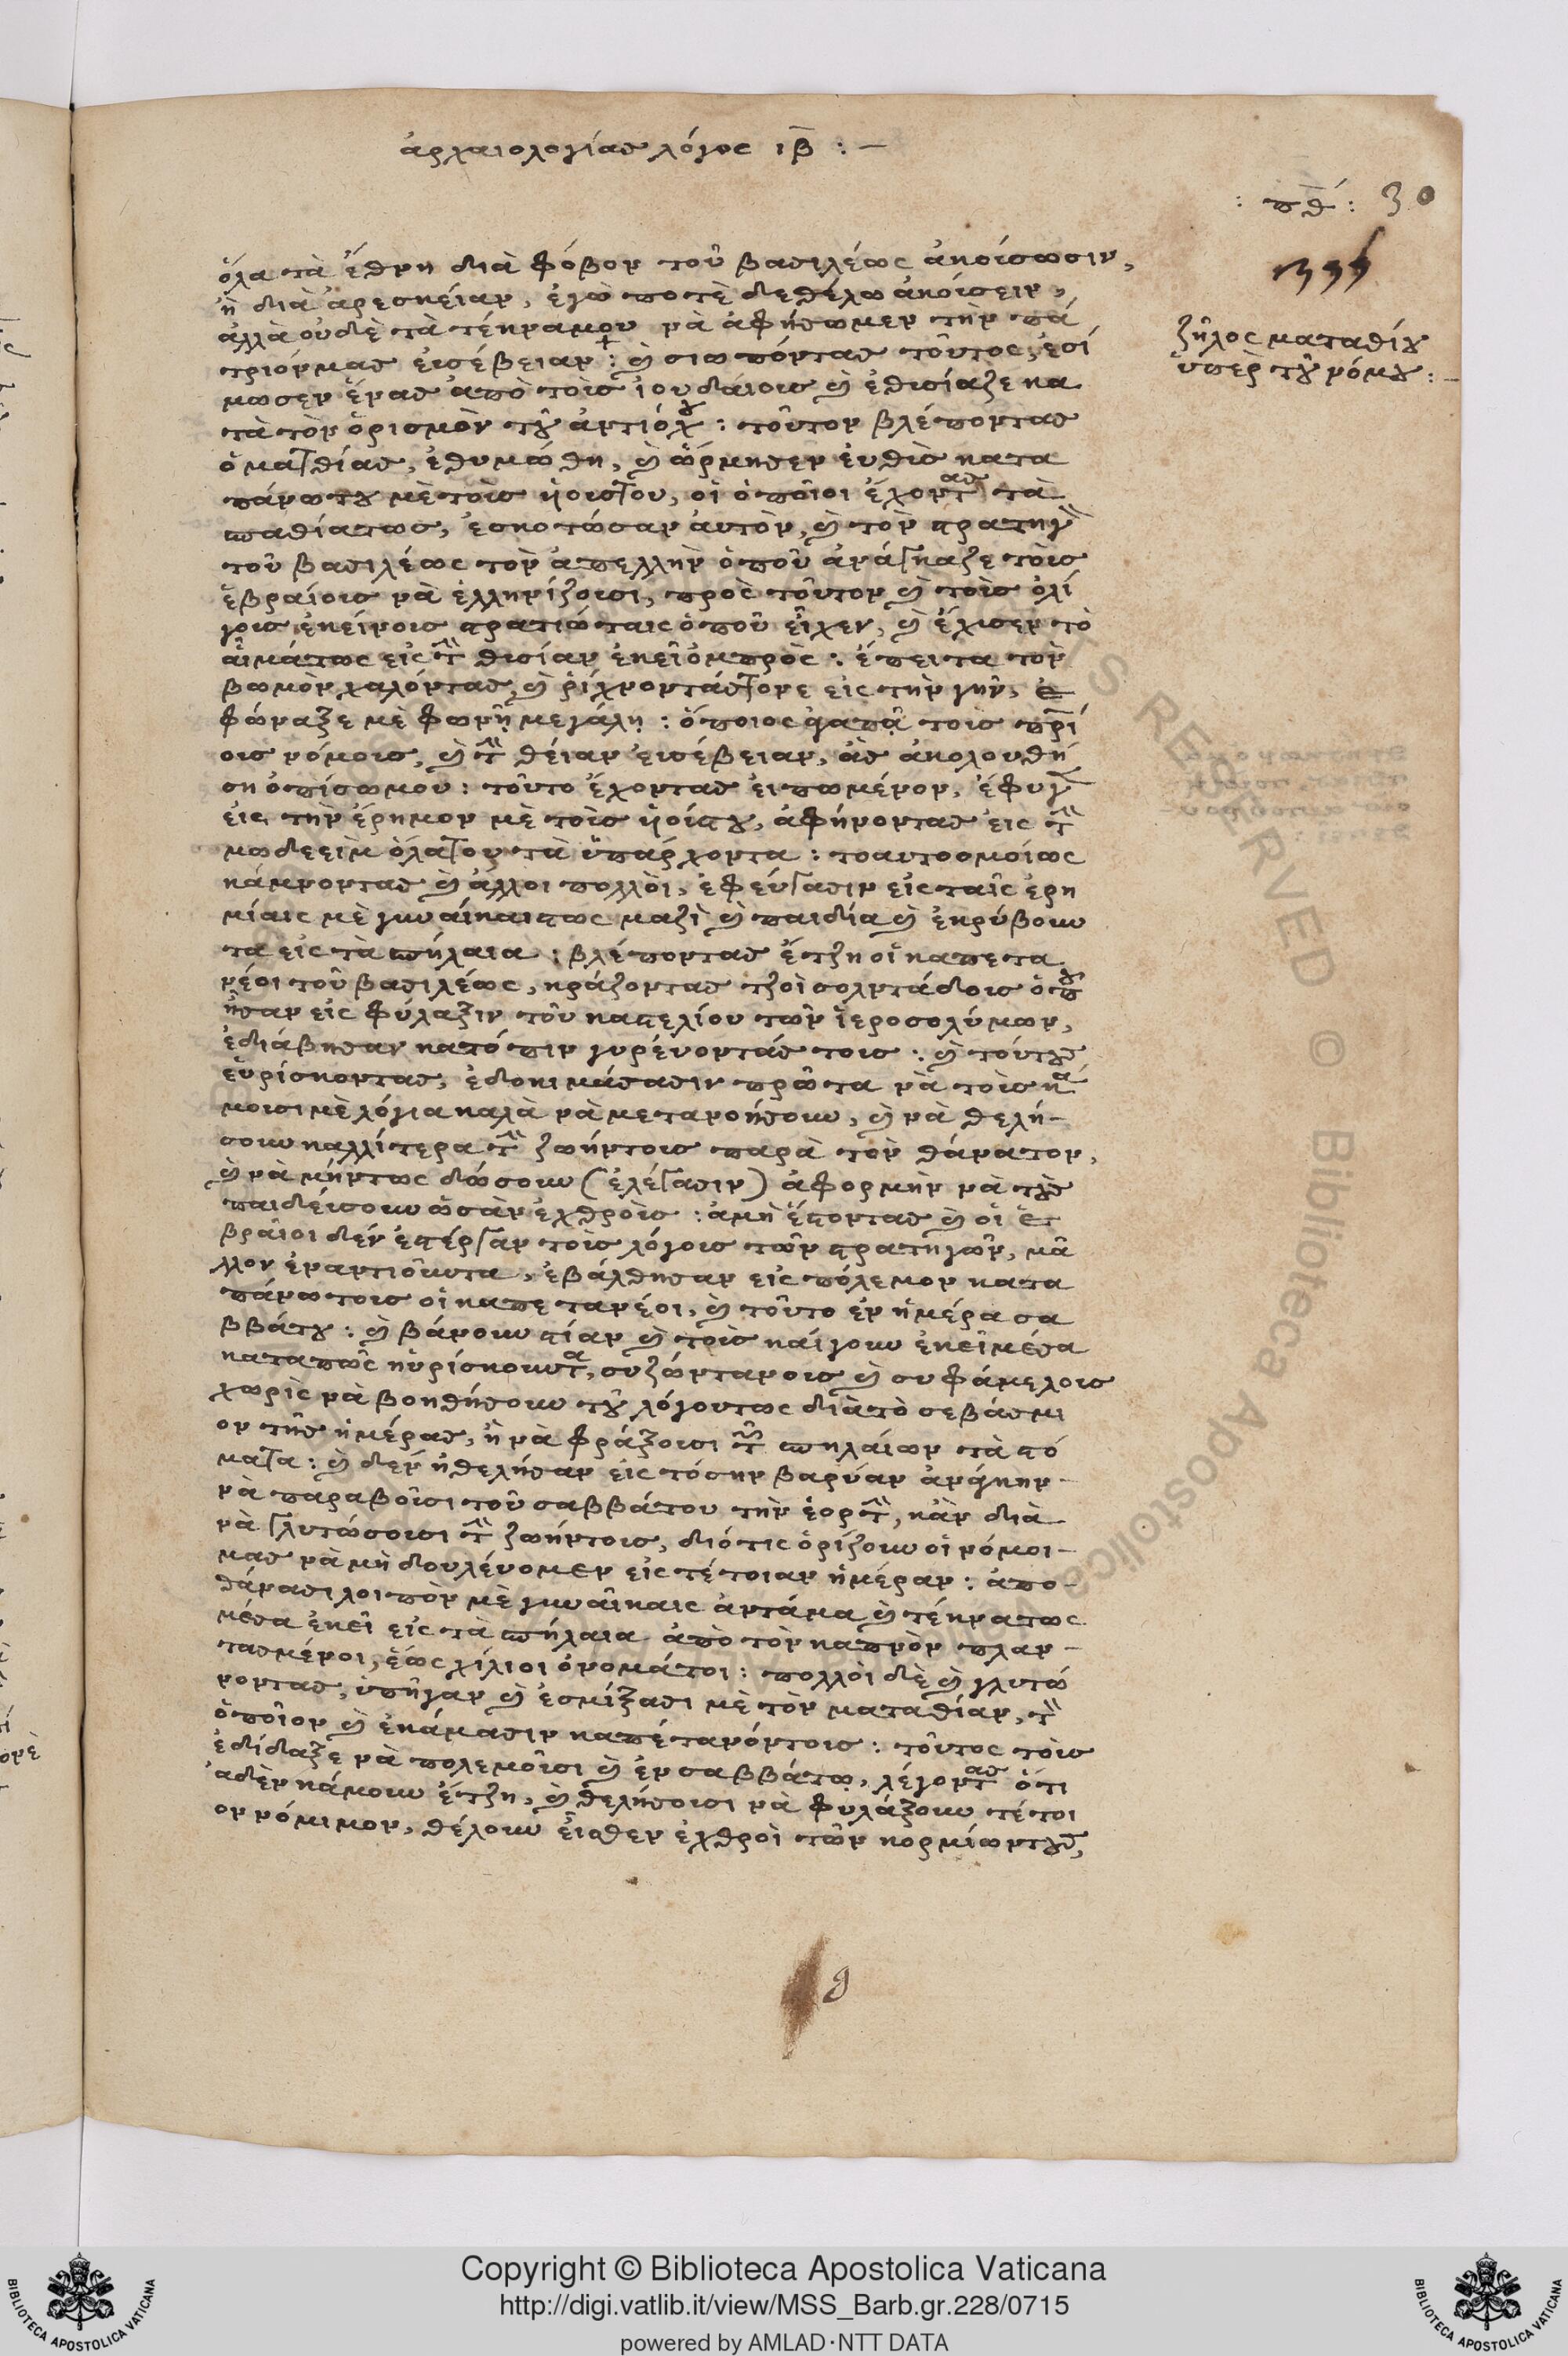 ἀρχαιολογίας λόγος ιβ : —
: πθ : 30
399
ὅλα τὰ ἔθνη διὰ φόβον τοῦ βασιλέως ἀκούσωσιν,
ἢ διὰ ἀρεσκείαν, ἐγὼ ποτὲ δε θέλω ἀκούσειν,
ἀλλὰ οὐδὲ τὰ τέκνα μου νὰ ἀφήσωμεν τὴν πα
τριόν μας εὐσέβειαν : ϗ σιωπόντας τοῦτος, ἐσί
μωσεν ἕνας ἀπὸ τοὺς ἰουδάιους ϗ ἐθυσίαζε κα
τὰ τὸν ὁρισμὸν τȣ ἀντιόχȣ : τοῦτον βλέποντας
ὁ ματθίας, ἐθυμώθη, ϗ ὥρμησεν ἐυθὺς κατα
πάνω τȣ μὲ τοὺς ὑούς του, οἱ ὁποῖοι ἔχοντας τὰ
σπαθία τως, ἐσκοτώσαν ἀυτὸν, ϗ τὸν στρατηγὸ
τοῦ βασιλέως τὸν ἀπελλὴν ὁποῦ ἀνάγκαζε τοὺς
ἑβραίους νὰ ἑλληνίζουσι, πρὸς τοῦτον ϗ τοὺς ὀλί
γους ἐκείνους στρατιώταις ὁποῦ εἶχεν, ϗ ἔχυσεν τὸ
αἷμά τως εἰς τὴν θυσίαν ἐκεῖ ὀμπρὸς : ἔπειτα τὸν
βωμὸν χαλόντας, ϗ ῥίχνοντάς τονε εἰς τὴν γῆν, ἐ
φώναξε μὲ φωνῇ μεγάλῃ : ὅποιος ἀγαπᾷ τοὺς πρί
ους νόμους, ϗ τὴν θέιαν εὐσέβειαν, ἂς ἀκολουθή
ση ὀπίσω μου : τοῦτο ἔχοντας ειπωμένον, ἔφυγε
εἰς τὴν ἔρημον μὲ τοὺς ὑούς τȣ, ἀφήνοντας εἰς τὴν
μωδεεὶμ ὅλα του τὰ ὑπάρχοντα : το αυτο ομοίως
κάμνοντας ϗ ἄλλοι πολλὸι, ἐφεύγασιν εἰς ταῖς ἐρη
μίαις μὲ γυναίκαις τως μαζὶ ϗ παιδία ϗ ἐκρύβουν
τα εἰς τὰ σπήλαια : βλέποντας ἔτζη οἱ καπετα
νέοι τοῦ βασιλέως, κράζοντας τζοὶ σολντάδους ὁπȣ
ἦσαν εἰς φύλαξιν τοῦ καστελίου τῶν ἱεροσολύμων,
ἐδιάβησαν κατόπιν γυρέυοντάς τους : ϗ τούτȣς
ἑυρίσκοντας, ἐδοκιμάσασιν πρῶτα νὰ τοὺς κά
μουσι μὲ λόγια καλὰ νὰ μετανοήσουν, ϗ νὰ θελή-
σουν καλλίτερα τὴν ζωήν τους παρὰ τὸν θάνατον,
ϗ νὰ μήν τως δώσουν (ἐλέγασιν) ἀφορμην νὰ τȣς
παιδέυσουν ὡσὰν ἐχθροὺς : ἀμὴ ἔστοντας ϗ οἱ ἑ-
βραῖοι δέν ἐστέργαν τοὺς λόγους τῶν στρατηγῶν, μᾶ
λλον ἐναντιοῦντα, ἐβάλθησαν εἰς πόλεμον κατα
πάνω τους οἱ καπετανέοι, ϗ τοῦτο ἐν ἡμέρα σα
ββάτȣ : ϗ βάνουν στίαν ϗ τοὺς καίγουν ἐκεῖ μέσα
καταπῶς ηὑρίσκουντα, συζώντανους ϗ συφάμελους
χωρὶς νὰ βοηθήσουν τȣ λόγου τως διὰ τὸ σεβάσμι
ον τῆς ἡμέρας, ἢ νὰ φράξουσι τῶν σπηλαίων τὰ στό
ματα : ϗ δεν ἠθελήσαν εἰς τόσην βαρύαν ἀνάγκην -
νὰ παραβοῦσι τοῦ σαββάτου τὴν ἑορτὴν, κἂν διὰ
νὰ γλυτώσουσι τὴν ζωήν τους, διότις ὁρίζουν οἱ νόμοι -
μας νὰ μὴ δουλέυομεν εἰς τέτοιαν ἡμέραν : ἀπο -
θάνασι λοιπὸν μὲ γυναῖκαις ἀντάμα ϗ τέκνα τως
μέσα ἐκεῖ εἰς τὰ σπήλαια ἀπὸ τὸν καπνὸν πλαν -
τασμένοι, ἕως χίλιοι ὀνομάτοι : πολλὸι δὲ ϗ γλυτώ
νοντας, ὑπῆγαν ϗ ἐσμίξασι μὲ τὸν ματαθίαν, τὸν
ὁποῖον ϗ ἐκάμασιν καπέτανόν τους : τοῦτος τοὺς
ἐδίδαξε νὰ πολεμοῦσι ϗ ἐν σαββάτῳ, λέγοντας ὅτι
ἂ δὲν κάμουν ἔτζη, ϗ θελήσουσι νὰ φυλάξουν τέτοι
ον νόμιμον, θέλουν εἶσθεν ἐχθροὶ τῶν κορμίων τȣς,
ζῆλος ματαθίȣ
ὑπὲρ τȣ νόμȣ : -
Copyright © Biblioteca Apostolica Vaticana
http://digi.vatlib.it/view/MSS_Barb.gr.228/0715
powered by AMLAD·NTT DATA
BIBLIOTECA APOSTOLICA VATICANA
BIBLIOTECA APOSTOLICA VATICANA